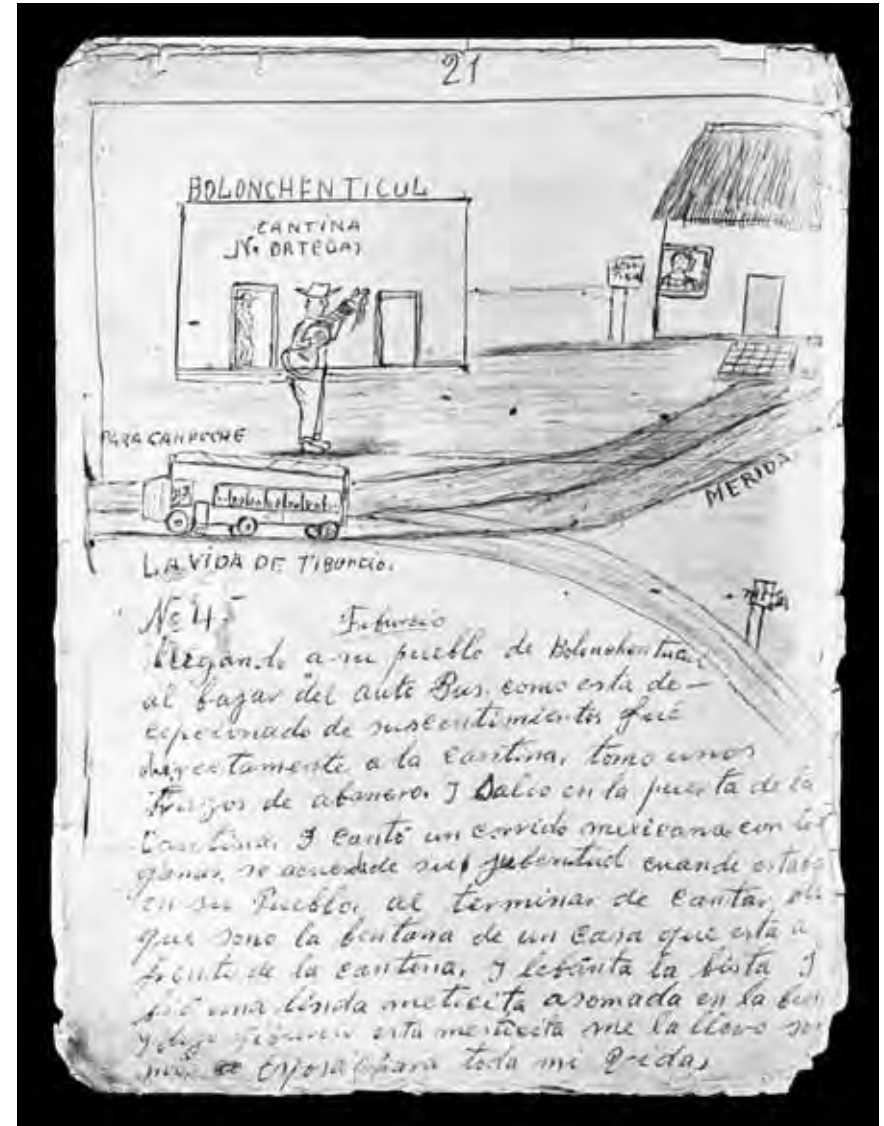 21
BOLONCHENTICUL
CANTINA
N. ORTEGAS
PARA CAMPECHE
MERIDA
LA VIDA DE TIBURCIO.
No 45
Tiburcio
llegando a su pueblo de Bolonchenticul
al bagar del auto Bus. como esta de-
cepcionado de suscentimientos fué
directamente a la cantina, tomo unos
Trazos de abanero. I Salio en la puerta de la
Cantina. I Cantó un corrido mexicana con
ganas, se acuerda de su jubentud cuando estaba
en su Pueblo, al terminar de cantar,
que sono la bentana de un casa que esta a
frente de la cantina, I lebanta la bista I
una linda meticita asomada en la
y dijo esta mesticita me la llevo
esposa para toda mi Qvida,